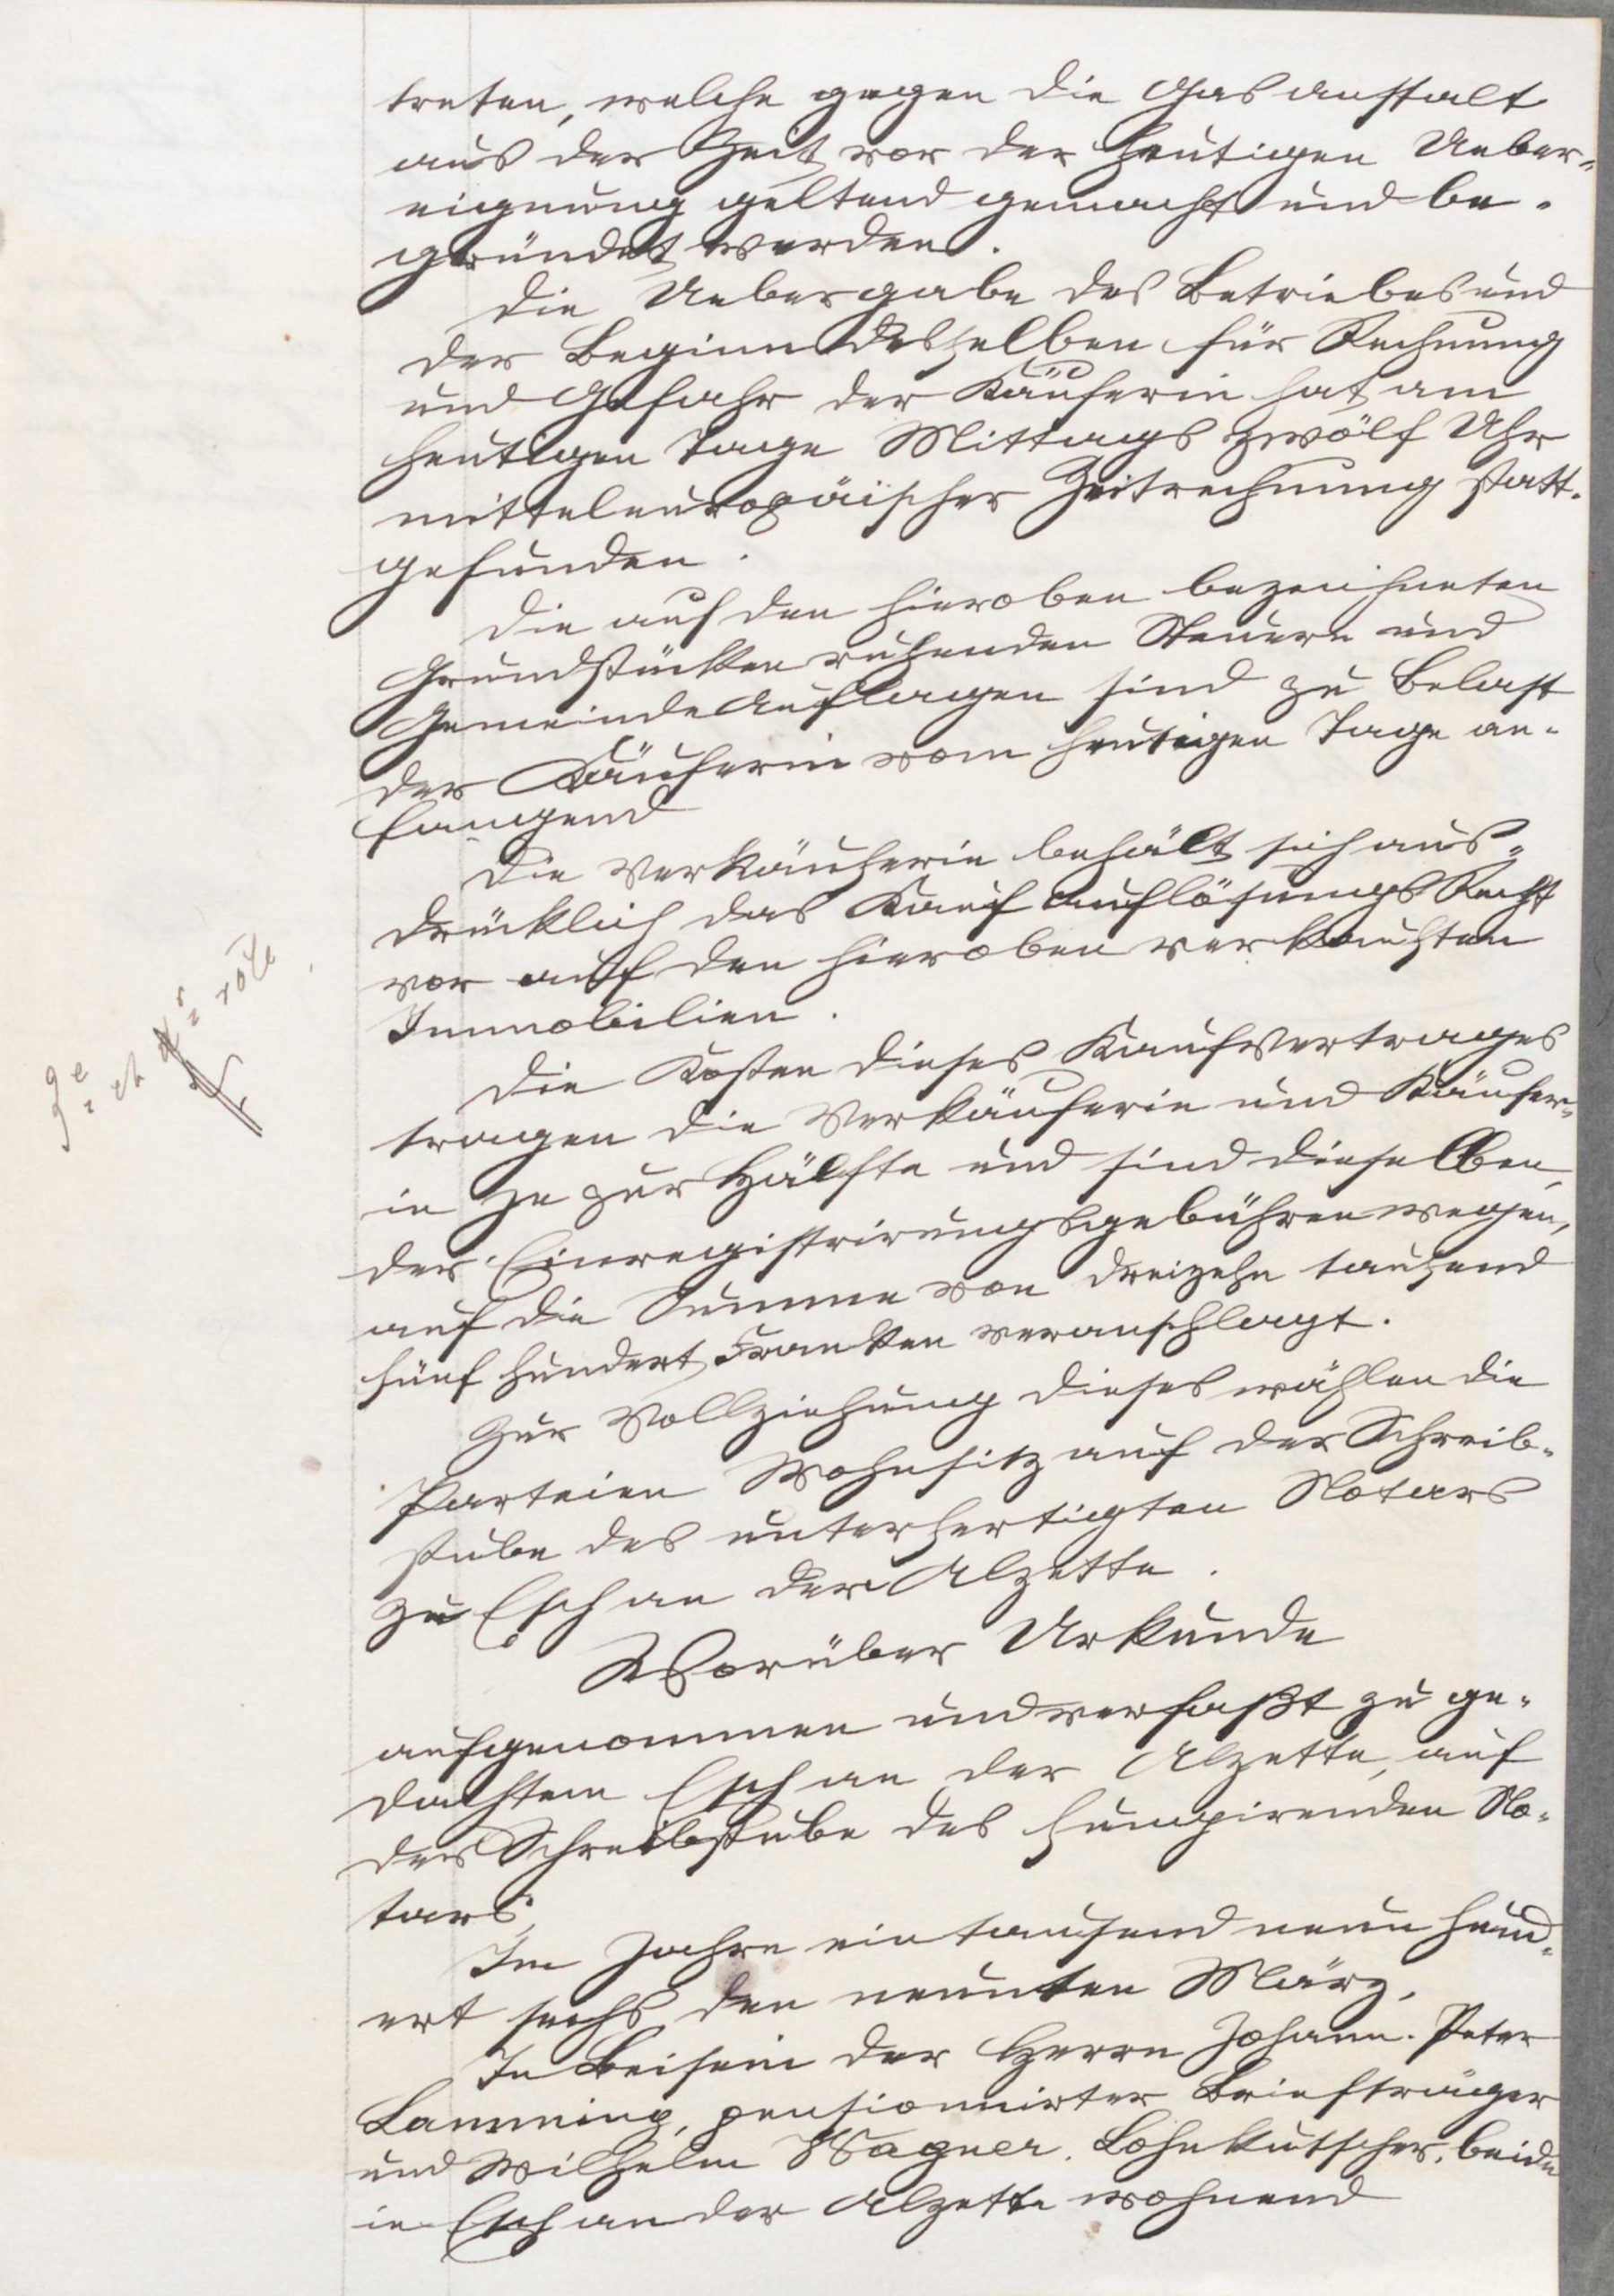 treten, welche gegen die Gasanstalt
aus der Zeit vor der heutigen Ueber-
eignung geltend gemacht und be-
gründet werden.
Die Uebergabe des Betriebes und
der Beginn desselben für Rechnung
und Gefahr der Käuferin hat am
heutigen Tage Mittags zwölf Uhr
mitteleuropäischer Zeitrechnung statt-
gefunden.
Die auf den hieroben bezeichneten
Grundstücken ruhenden Steuern und
Gemeindeauflagen sind zu Belast
der Käuferin vom heutigen Tage an-
fangend
Die Verkäuferin behält sich aus-
drücklich das Kaufauflösungs Recht
vor auf den hieroben verkauften
Immobilien.
Die Kosten dieses Kaufvertrages
tragen die Verkäuferin und Käufer-
in je zur Hälfte und sind dieselben,
der Einregistrirungsgebühren wegen,
auf die Summe von dreizehn tausend
fünf hundert Franken veranschlagt.
Zur Vollziehung dieses wählen die
Parteien Wohnsitz auf der Schreib-
stube des unterfertigten Notars
zu Esch an der Alzette.
Worüber Urkunde
aufgenommen und verfaßt zu ge-
dachtem Esch an der Alzette, auf
der Schreibstube des fungirenden No-
tars,
Im Jahre eintausend neun hund-
ert sechs, den neunten März,
In Beisein der Herrn Johann-Peter
Lamming, pensionnirter Briefträger
und Wilhelm Wagner, Lohnkutscher, beide
in Esch an der Alzette wohnend
et rôle